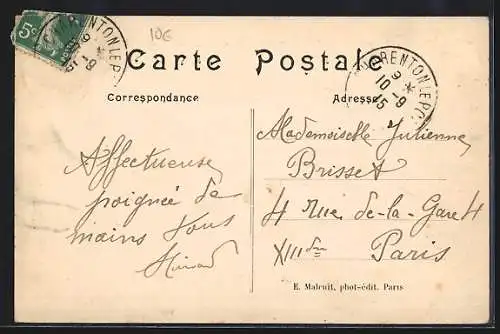 5c
10€
CHARENTON LE P
9 *
10 - 9
15
CHARENTON LE P
9 *
10 - 9
15
Carte Postale
Correspondance
Adresse
Affectueuse
poignée de
mains
Mademoiselle Julienne
Brisset
4 Rue de-la-Gare 4
XIII
Paris
E. Malcuit, phot-édit. Paris